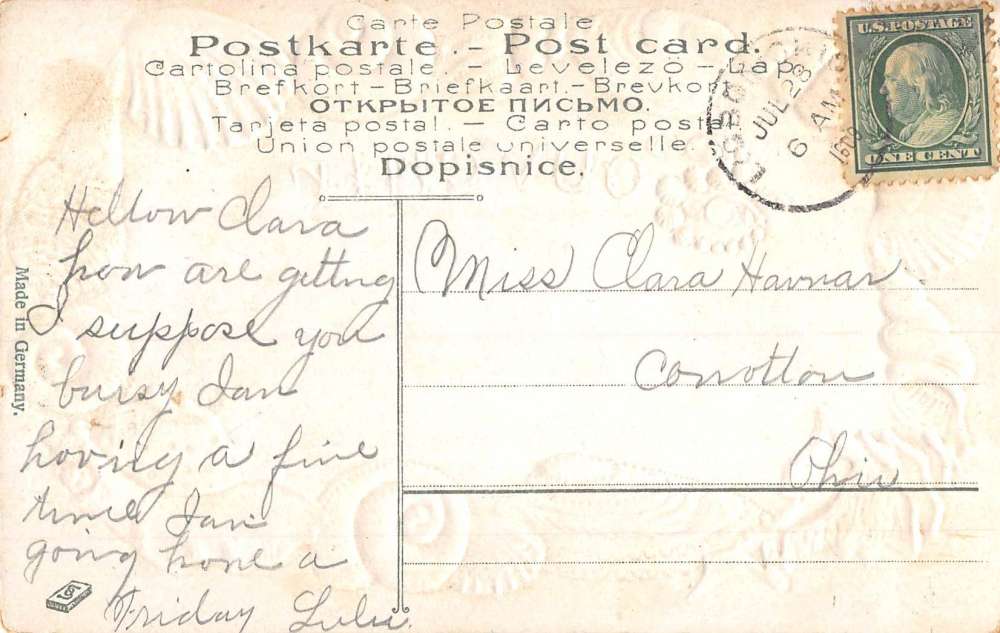 Carte Postale
Postkarte. - Post card.
Cartolina postale. - Levelező - Lap.
Brefkort - Briefkaart. - Brevkort
ОТКРЫТОЕ ПИСЬМО.
Tarjeta postal. - Carto postal
Union postale universelle.
Dopisnice.
U.S. POSTAGE
ONE CENT
JUL 28
6 AM
1909
Made in Germany.
Hellow Clara
how are getting
I suppose you
bursy I am
hoving a fine
time I am
going home a
Friday Lulu
Miss Clara Havnar
Conotton
Ohio